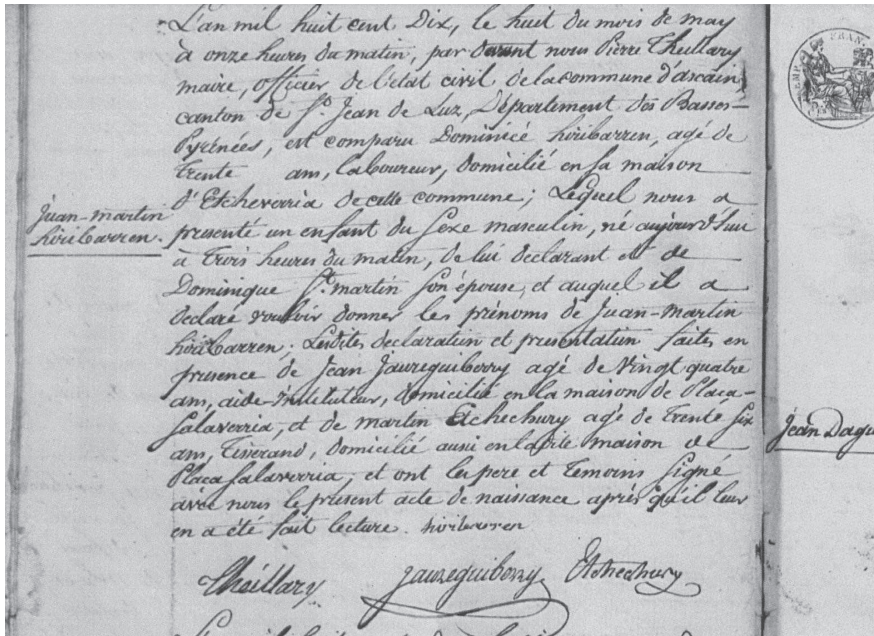 L'an mil huit cent Dix, le huit du mois de may
à onze heures du matin, par devant nous Pierre Theillary
maire, officier de l'etat civil de la commune d'ascain
canton de St. Jean de Luz, Département des Basses-
Pyrénées, est comparu Dominicé hiribarren, agé de
Trente ans, laboureur, domicilié en sa maison
d'Etcheverria de cette commune; Lequel nous a
juan-martin
hiribarren.
presenté un enfant du sexe masculin, né aujourd'hui
à Trois heures du matin, de lui declarant et de
Dominique St. martin son épouse, et auquel il a
declaré vouloir donner les prénoms de juan-martin
hiribarren; Lesdites declaration et presentation faites en
presence de jean jaureguiberry agé de vingt quatre
ans, aide-instituteur, domicilié en la maison de Placa-
Salaverria, et de martin Etchechury agé de Trente six
ans, Tisserand, domicilié aussi en ladite maison de
Placa Salaverria, et ont les pere et Temoins signé
avec nous le présent acte de naissance après qu'il leur
en a été fait lecture. hiribarren
Theillary jaureguiberry Etchechury
jean Dagu
FRAN